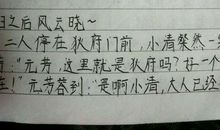 之后风云晓~
二人停在狄府门前,小清粲然一
"元芳,这里就是狄府吗?好一个
在!"元芳答到:"是啊小清,大人已经